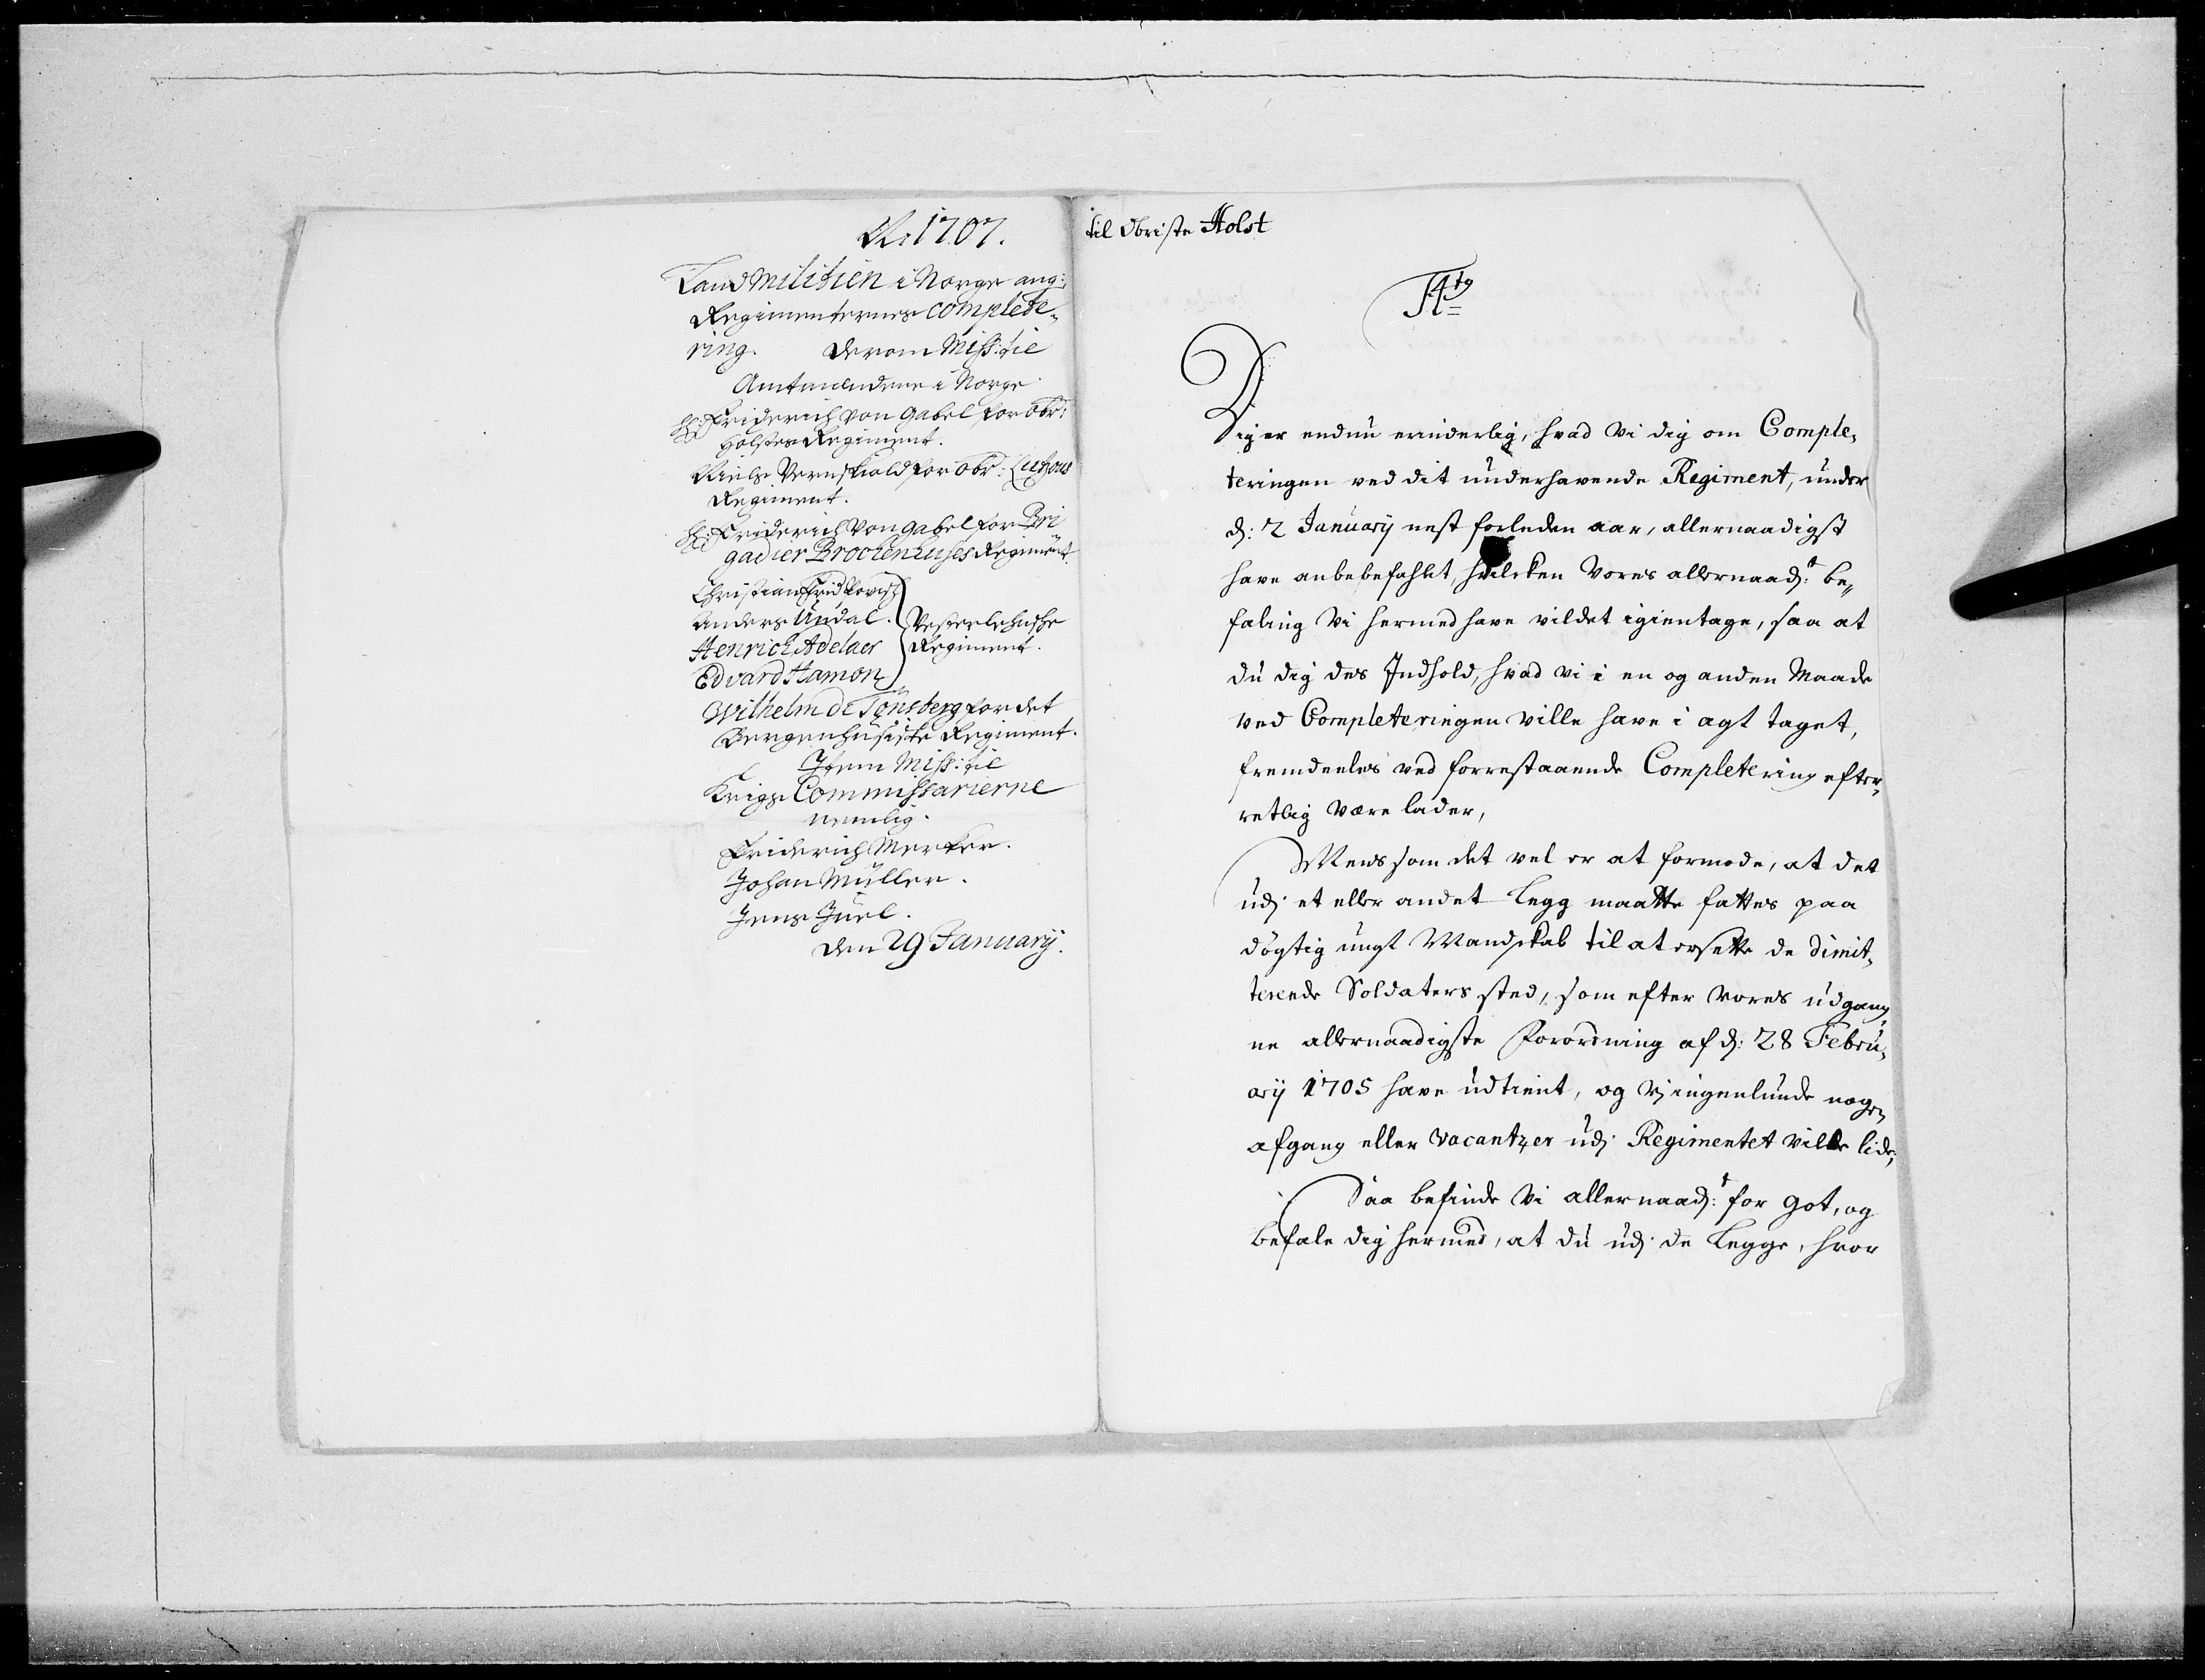 1707.
Land Militien i Norge ang:
Regimenternes Complete-
ring. derom Miss: til
Amtmendene i Norge
Friderich von Gabel for Obr:
Holstes Regiment.
Niels Vernskiold for Obr:
Regiment.
Friderich von Gabel for Bri
gadier Brochenhuses Regiment.
Christian
Anders Undal. Vesterlehnske
Henrich Adelaer Regiment.
Edvard Hamon
Wilhelm de Tönsberg for det
Bergenhusiske Regiment.
Item Miss: til
Krigs Commissarierne
nemlig.
Friderich Merker.
Johan Müller.
Jens Juel.
den 29 January.
til Obriste Holst
Dig er endnu erinderlig, hvad Vi dig om Comple-
teringen ved dit underhavende Regiment, under
d: 2 January nest forleden aar, allernaadigst
have anbebefahlet, hvilcken Vores allernaad:t be-
faling Vi hermed have vildet igientage, saa at
du dig des Indhold, hvad vi i en og anden Maade
ved Completeringen ville have i agt taget,
fremdeeles ved forrestaaende Completering efter-
retlig være lader,
Mens som det vel er at formode, at det
udj et eller andet Legg maatte fattes paa
dögtig ungt Mandskab til at ersette de dimit-
terende Soldaters sted, som efter Vores udgang-
ne allernaadigste Forordning af d: 28 Febru-
ary 1705 have udtient, og Vj ingenlunde nogen
afgang eller Vacantzer udj Regimentet ville lide,
Saa befinde Vi allernaad:t for got, og
befale dig hermed, at du udj de Legge, hvor